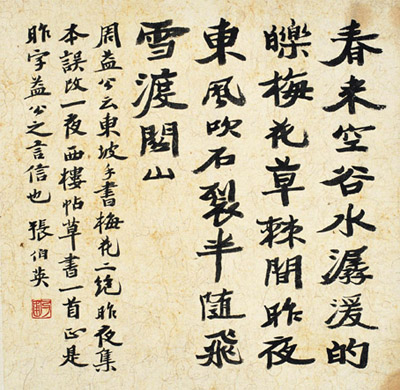 春来空谷水潺湲的
皪梅花草棘間昨夜
東風吹石裂半随飛
雪渡關山
周益公云東坡手書梅花二絶昨夜集
本誤改一夜西樓帖草書一首正是
昨字益公之言信也 張伯英